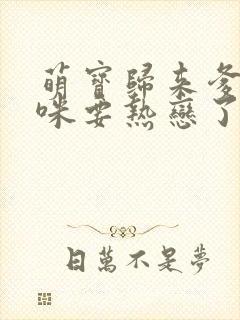 萌寶歸來爹
咪要熱戀了
日萬不是夢